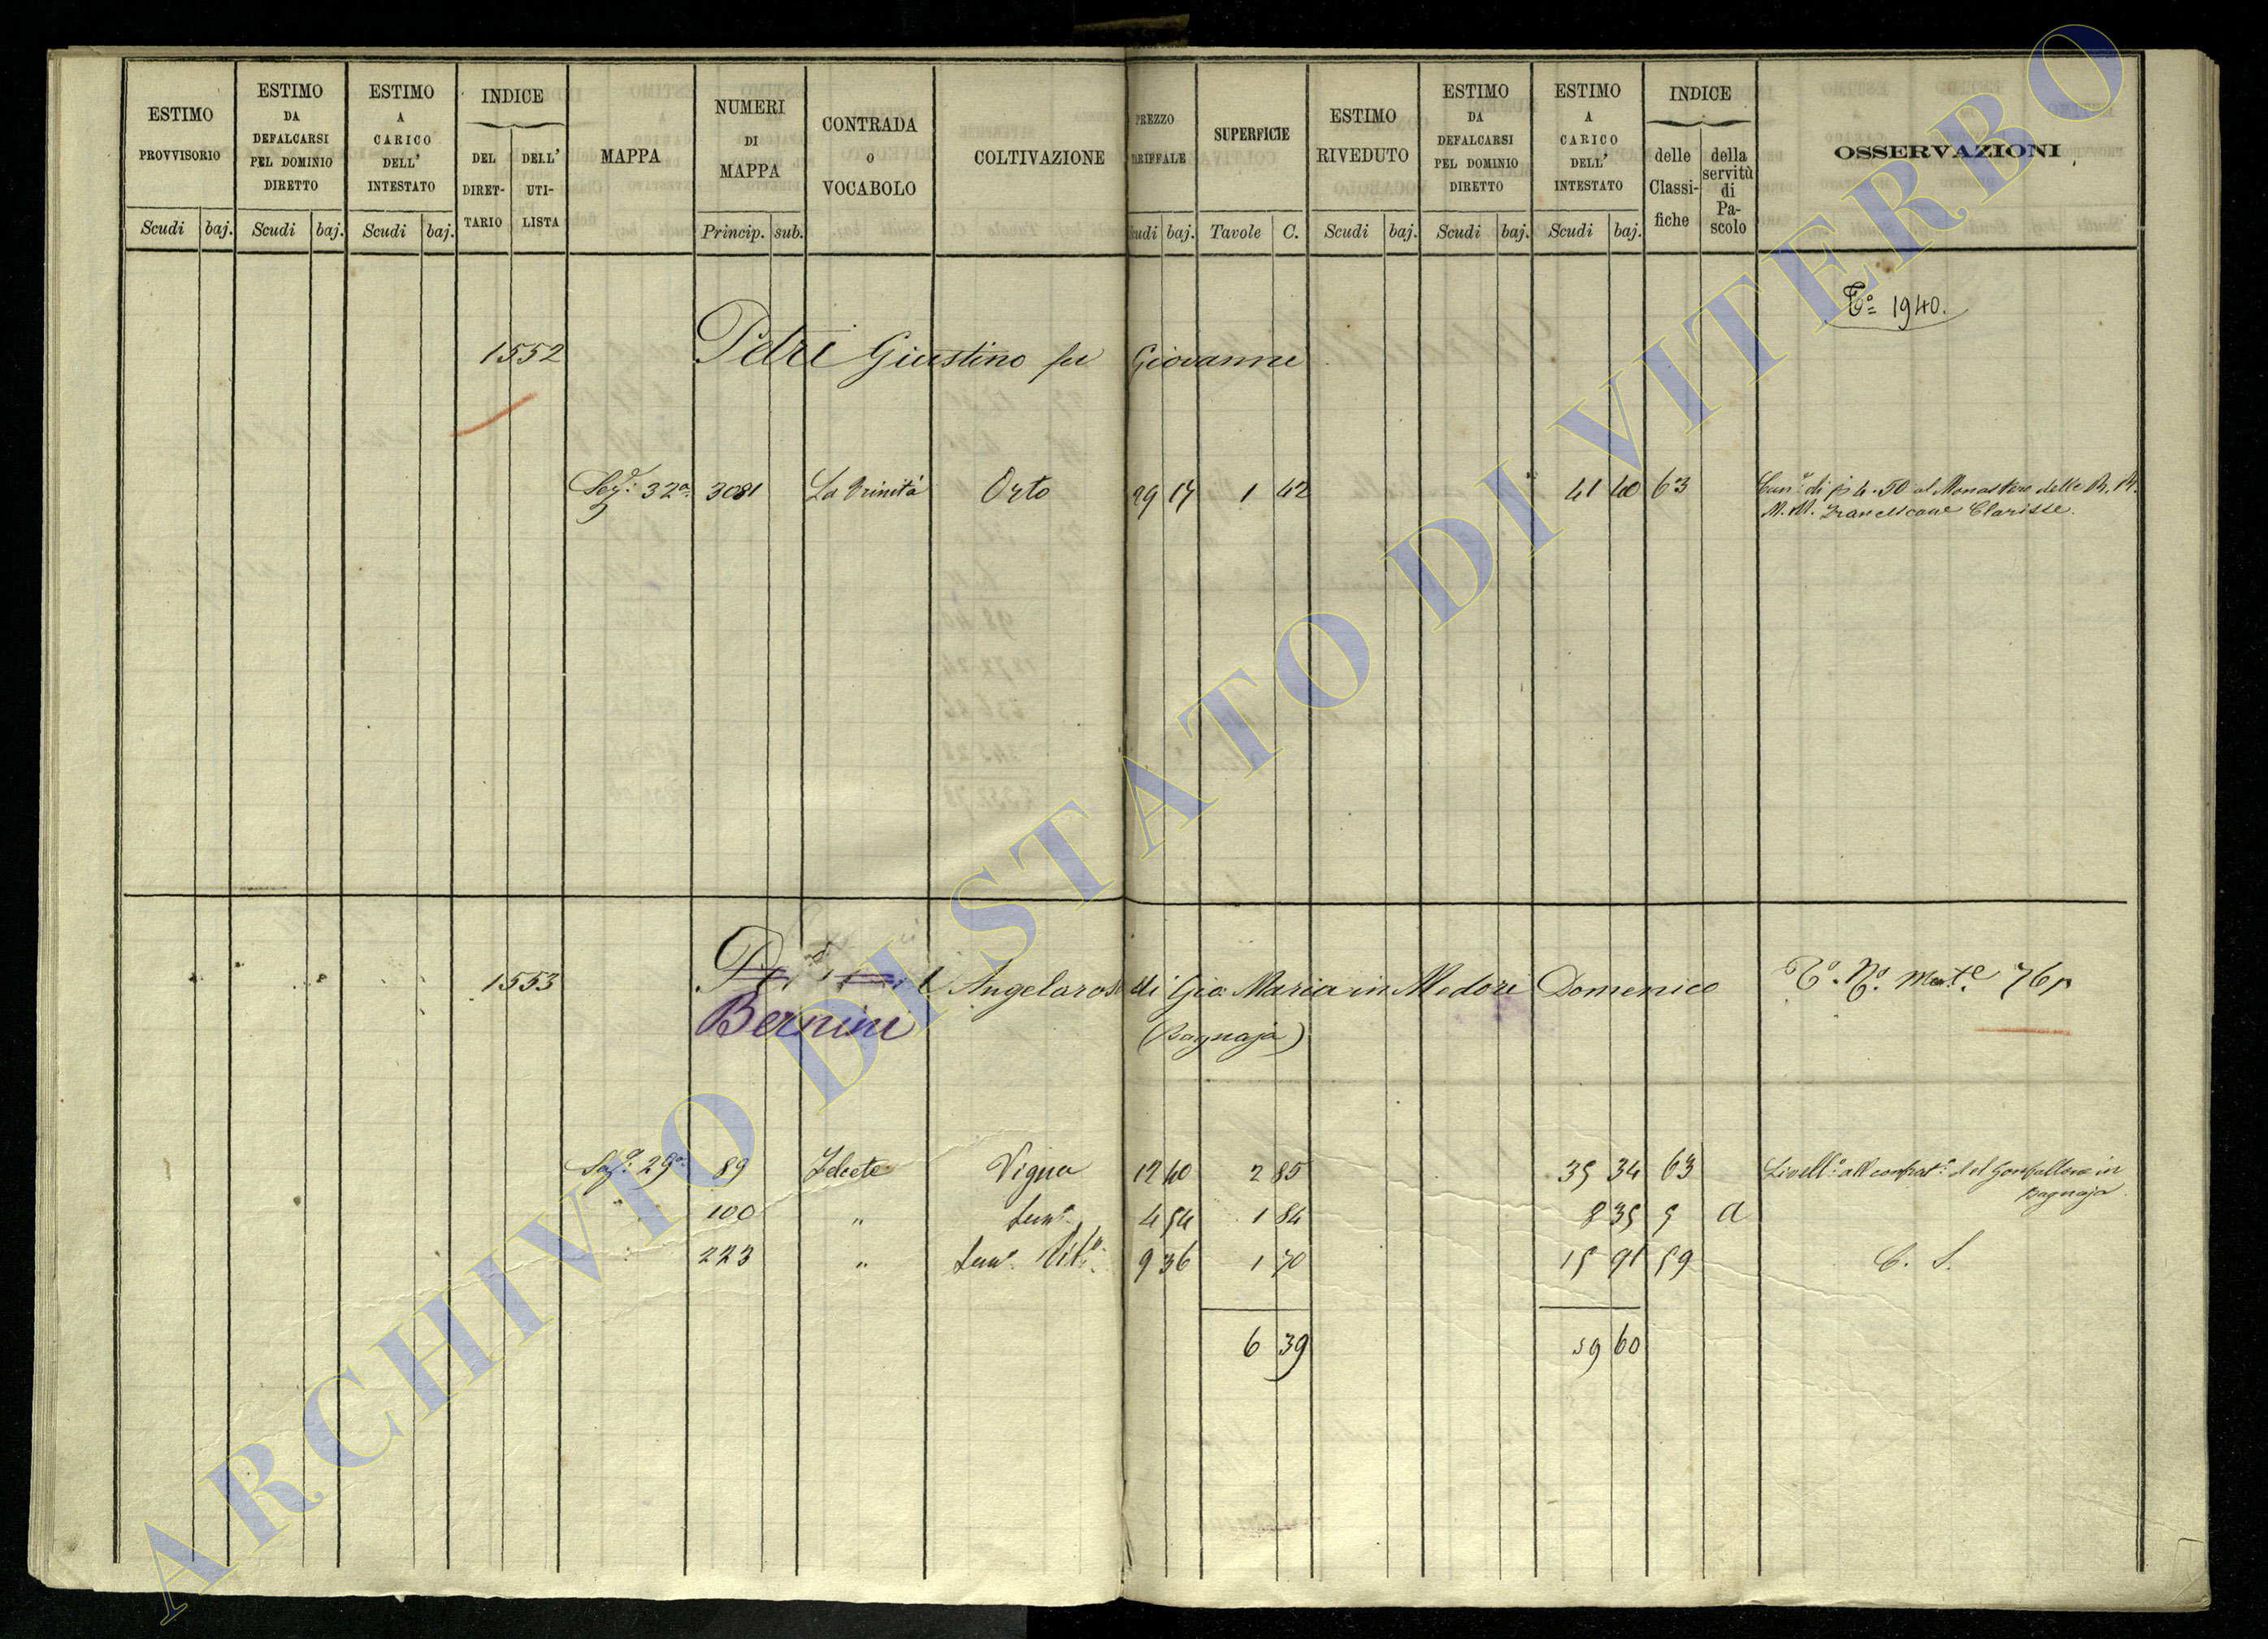 ESTIMO PROVVISORIO Scudi baj.
ESTIMO DA DEFALCARSI PEL DOMINIO DIRETTO Scudi baj.
ESTIMO A CARICO DELL' INTESTATO Scudi baj.
INDICE DEL DIRETTARIO DELL' UTILISTA
MAPPA
NUMERI DI MAPPA Princip. sub.
CONTRADA O VOCABOLO
COLTIVAZIONE
PREZZO TARIFFALE Scudi baj.
SUPERFICIE Tavole C.
ESTIMO RIVEDUTO Scudi baj.
ESTIMO DA DEFALCARSI PEL DOMINIO DIRETTO Scudi baj.
ESTIMO A CARICO DELL' INTESTATO Scudi baj.
INDICE delle Classifiche della servitù di Pascolo
OSSERVAZIONI
Tº 1940.
1552 Petri Giustino fu Giovanni
Segª 32ª 3081 La Trinità Orto 29 17 1 42 41 40 63 Canº di 4.50 al Monastero delle R. R.
M. M. Francescane Clarisse.
1553 Angelarosa di Gio. Maria in Medori Domenico Tº. Nº. Matº 76
Bernini (Bagnaja)
Segª 29ª 89 Felcete Vigna 12 40 2 85 35 34 63 Livellº all confratª del Gonfalone in
Bagnaja
100 " Semº 4 54 1 84 8 35 5 a
223 " Semº Vitº 9 36 1 70 15 91 59 C. S.
6 39 59 60
ARCHIVIO DI STATO DI VITERBO